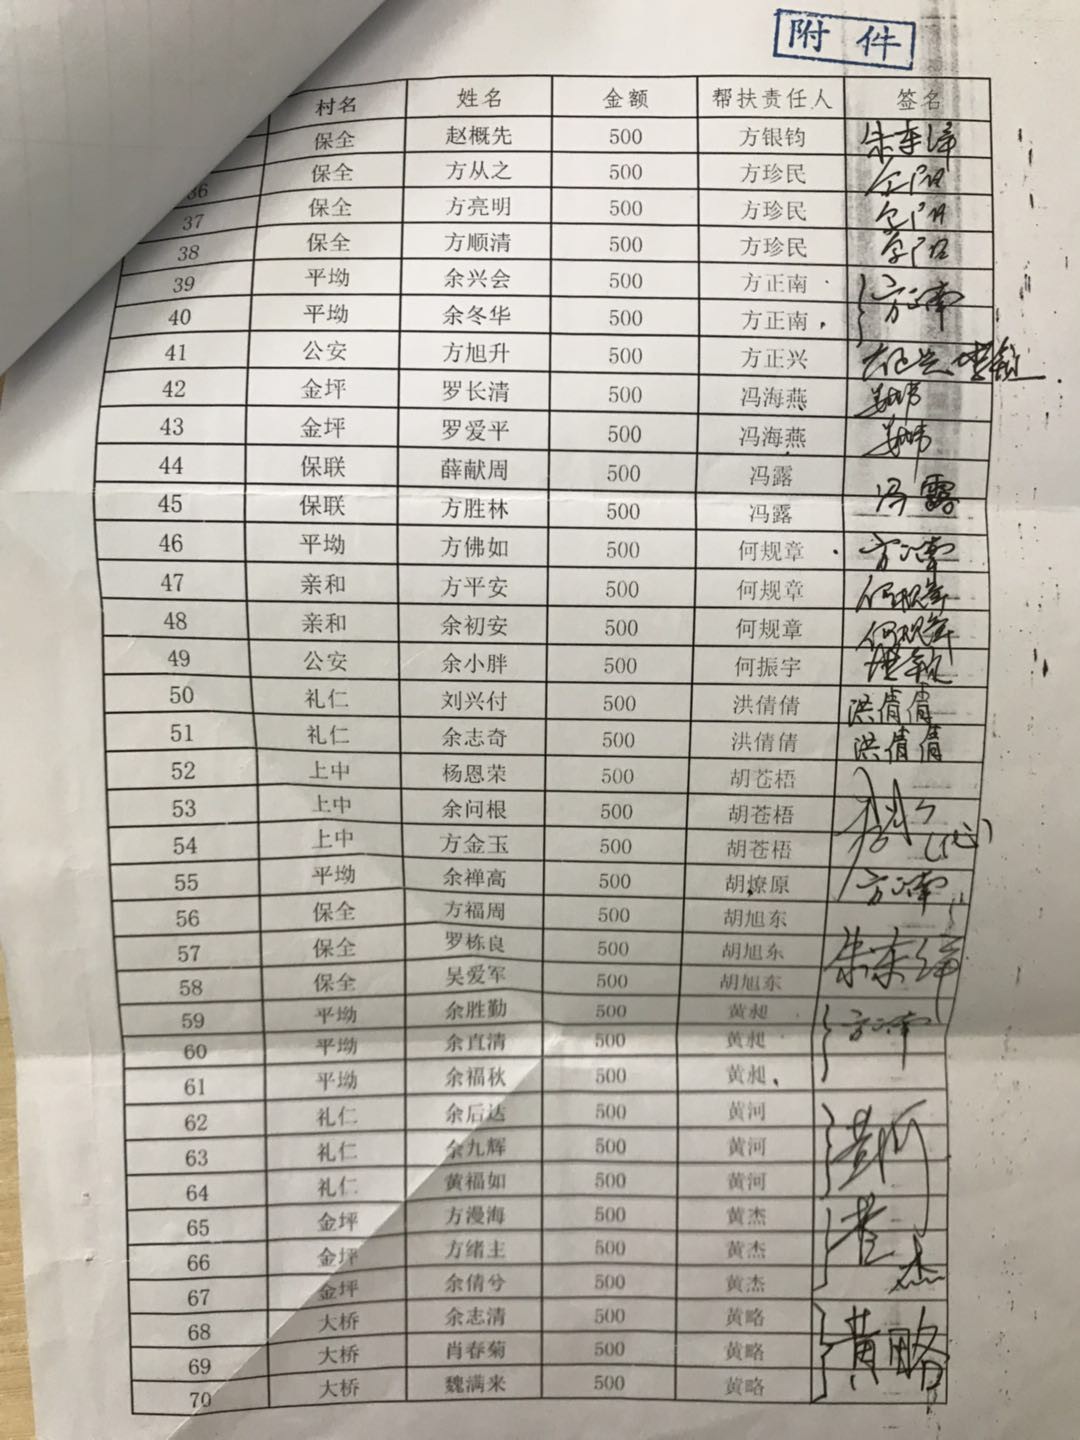 附 件
村名 姓名 金额 帮扶责任人 签名
保全 赵概先 500 方银钧
36 保全 方从之 500 方珍民
37 保全 方亮明 500 方珍民
38 保全 方顺清 500 方珍民
39 平坳 余兴会 500 方正南 方正南
40 平坳 余冬华 500 方正南
41 公安 方旭升 500 方正兴
42 金坪 罗长清 500 冯海燕
43 金坪 罗爱平 500 冯海燕
44 保联 薛献周 500 冯露 冯露
45 保联 方胜林 500 冯露
46 平坳 方佛如 500 何规章 方正南
47 亲和 方平安 500 何规章 何规章
48 亲和 余初安 500 何规章 何规章
49 公安 余小胖 500 何振宇
50 礼仁 刘兴付 500 洪倩倩 洪倩倩
51 礼仁 余志奇 500 洪倩倩 洪倩倩
52 上中 杨恩荣 500 胡苍梧
53 上中 余问根 500 胡苍梧
54 上中 方金玉 500 胡苍梧
55 平坳 余禅高 500 胡燎原 方正南
56 保全 方福周 500 胡旭东
57 保全 罗栋良 500 胡旭东
58 保全 吴爱军 500 胡旭东
59 平坳 余胜勤 500 黄昶 方正南
60 平坳 余直清 500 黄昶
61 平坳 余福秋 500 黄昶
62 礼仁 余后达 500 黄河
63 礼仁 余九辉 500 黄河 黄河
64 礼仁 黄福如 500 黄河
65 金坪 方漫海 500 黄杰
66 金坪 方绪主 500 黄杰 黄杰
67 金坪 余倩兮 500 黄杰
68 大桥 余志清 500 黄略
69 大桥 肖春菊 500 黄略 黄略
70 大桥 魏满来 500 黄略